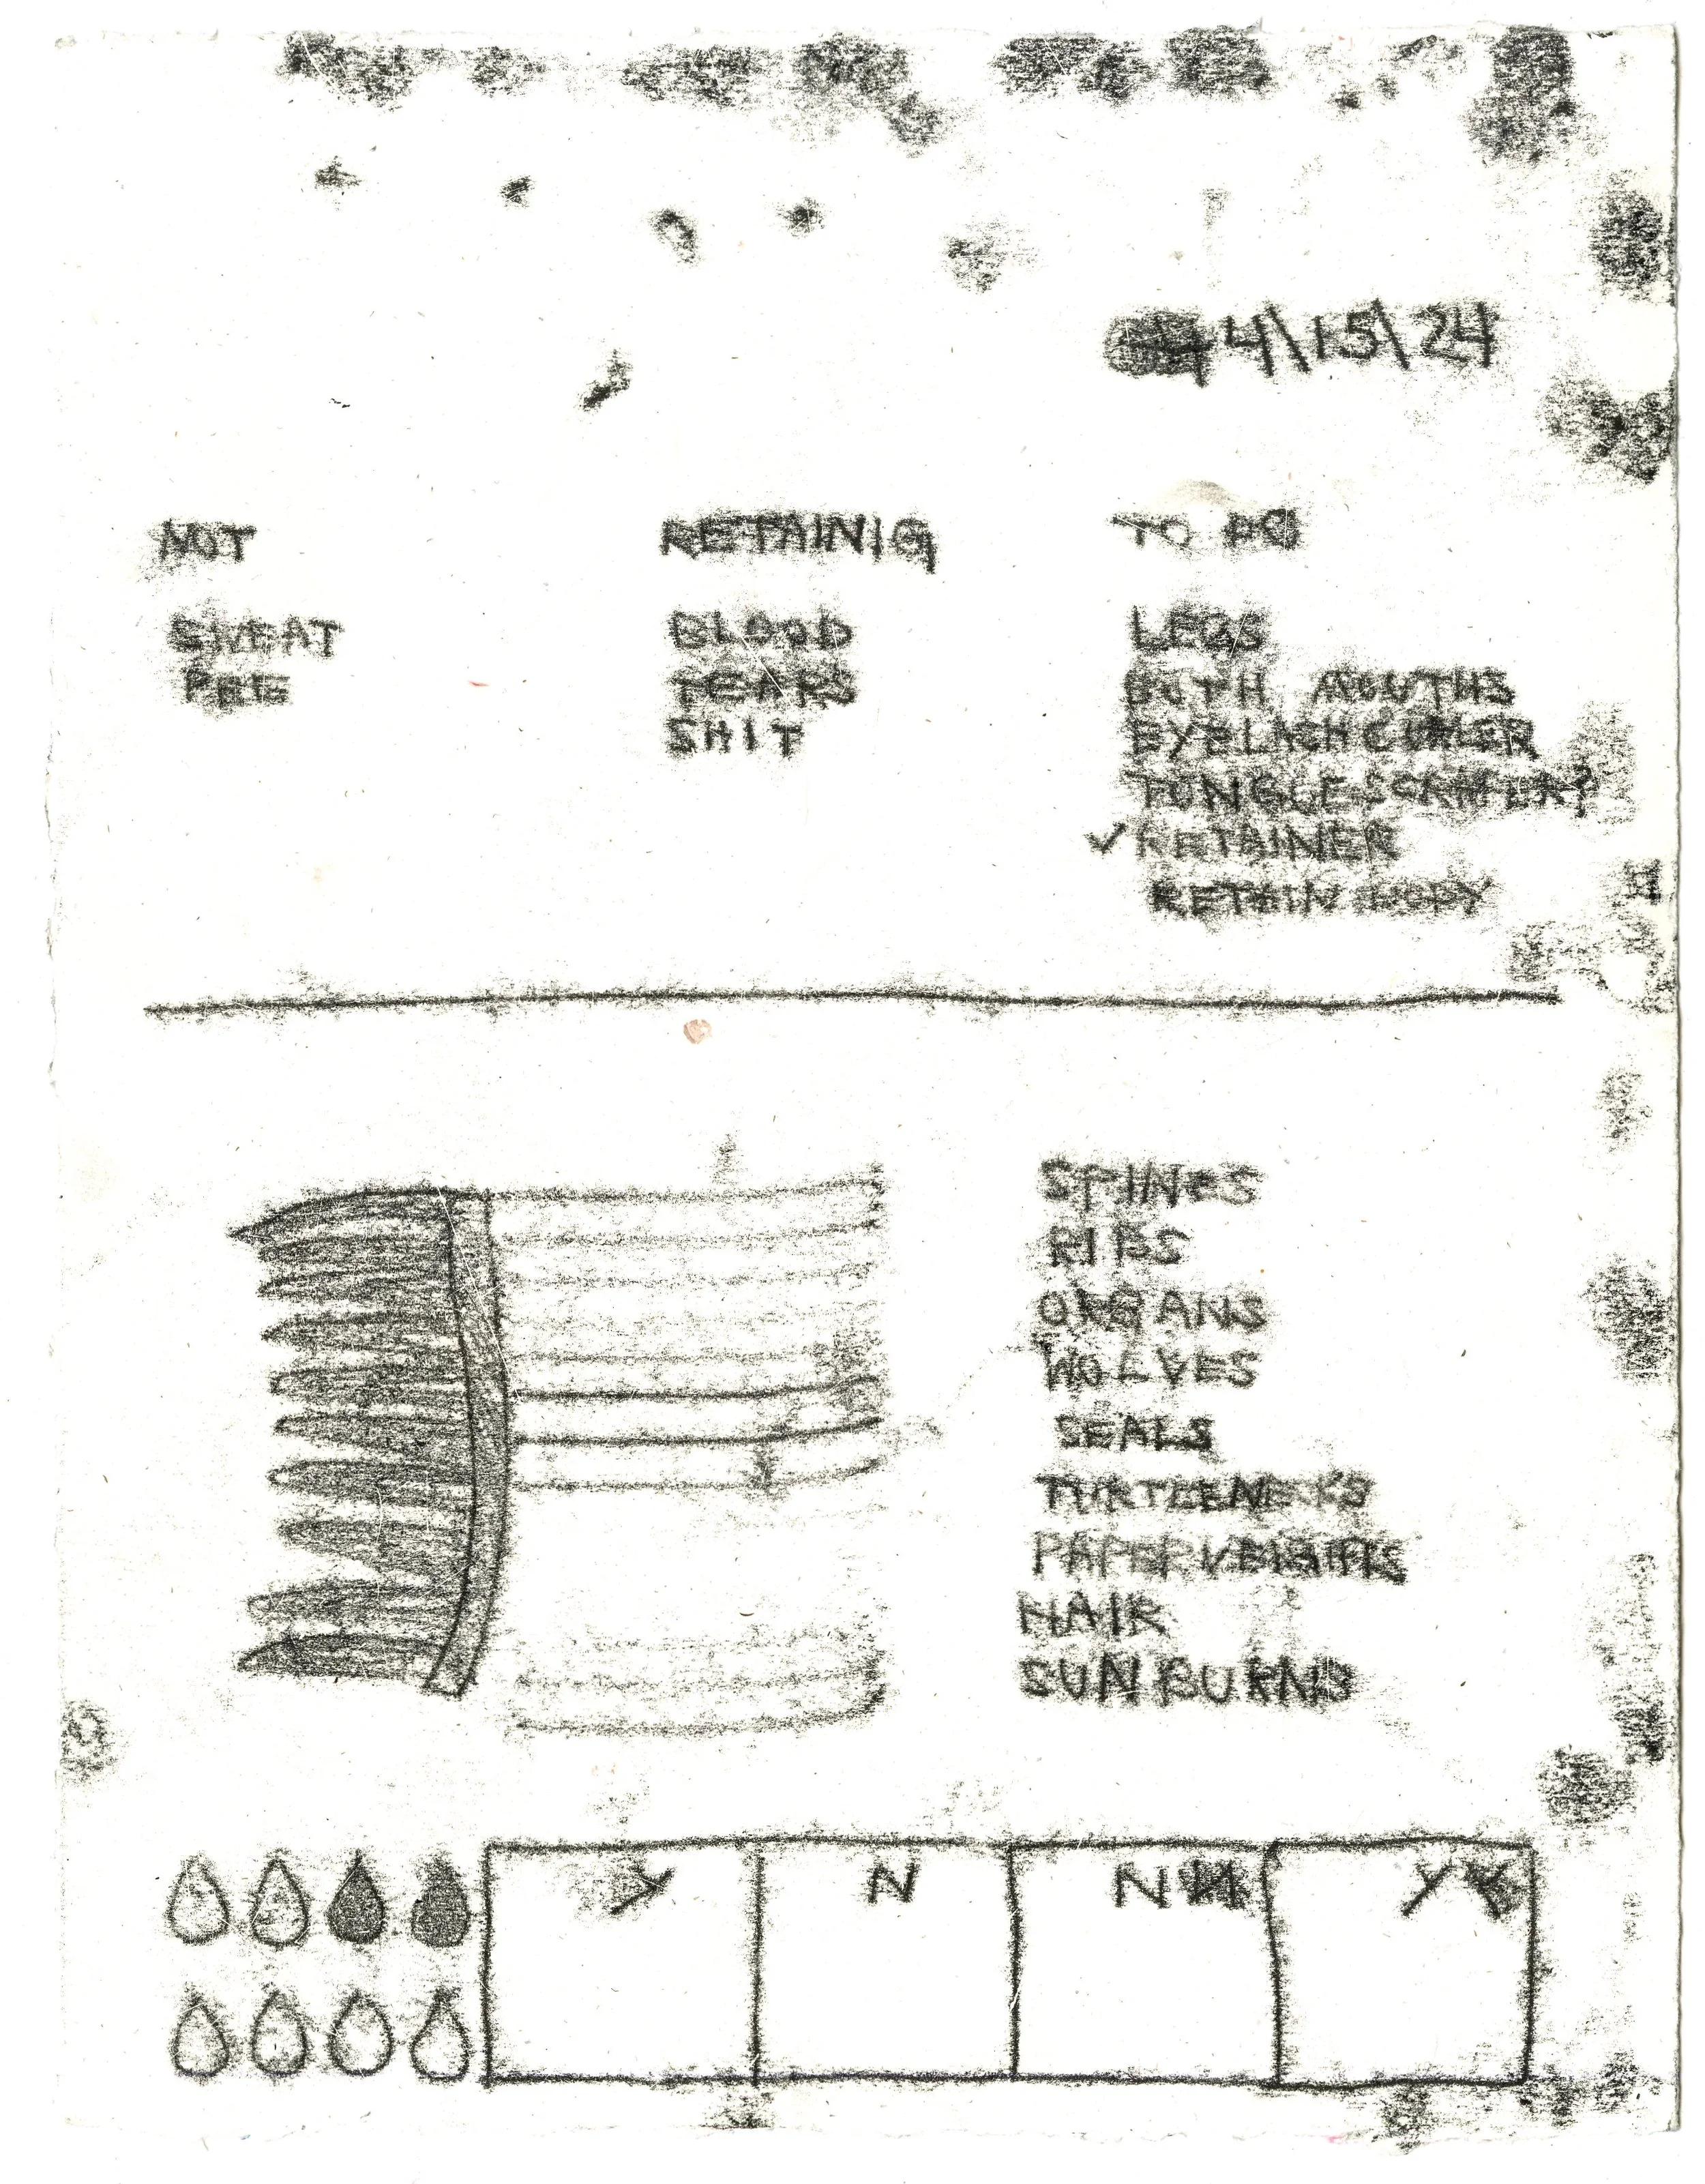 4\15\24
NOT
SWEAT
PEE
RETAINIG
BLOOD
TEARS
SHIT
TO DO
LEGS
BOTH MOUTHS
EYELASH CURLER
TUNGUE SCRAPER?
✓ RETAINER
RETAIN BODY
SPINES
RIBS
ORGANS
WOLVES
SEALS
TURTLENECKS
PAPERWEIGHTS
HAIR
SUN BURNS
Y N N Y